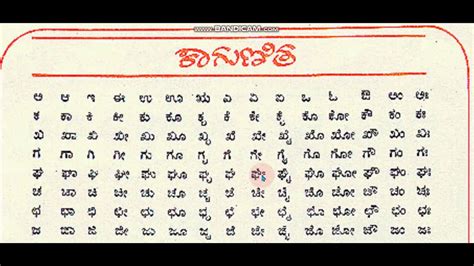 WWW.BANDICAM.COM
ಕಾಗುಣಿತ
ಅ ಆ ಇ ಈ ಉ ಊ ಋ ಎ ಏ ಐ ಒ ಓ ಔ ಅಂ ಅಃ
ಕ ಕಾ ಕಿ ಕೀ ಕು ಕೂ ಕೃ ಕೆ ಕೇ ಕೈ ಕೊ ಕೋ ಕೌ ಕಂ ಕಃ
ಖ ಖಾ ಖಿ ಖೀ ಖು ಖೂ ಖೃ ಖೆ ಖೇ ಖೈ ಖೊ ಖೋ ಖೌ ಖಂ ಖಃ
ಗ ಗಾ ಗಿ ಗೀ ಗು ಗೂ ಗೃ ಗೆ ಗೇ ಗೈ ಗೊ ಗೋ ಗೌ ಗಂ ಗಃ
ಘ ಘಾ ಘಿ ಘೀ ಘು ಘೂ ಘೃ ಘೆ ಘೇ ಘೈ ಘೊ ಘೋ ಘೌ ಘಂ ಘಃ
ಚ ಚಾ ಚಿ ಚೀ ಚು ಚೂ ಚೃ ಚೆ ಚೇ ಚೈ ಚೊ ಚೋ ಚೌ ಚಂ ಚಃ
ಛ ಛಾ ಛಿ ಛೀ ಛು ಛೂ ಛೃ ಛೆ ಛೇ ಛೈ ಛೊ ಛೋ ಛೌ ಛಂ ಛಃ
ಜ ಜಾ ಜಿ ಜೀ ಜು ಜೂ ಜೃ ಜೆ ಜೇ ಜೈ ಜೊ ಜೋ ಜೌ ಜಂ ಜಃ